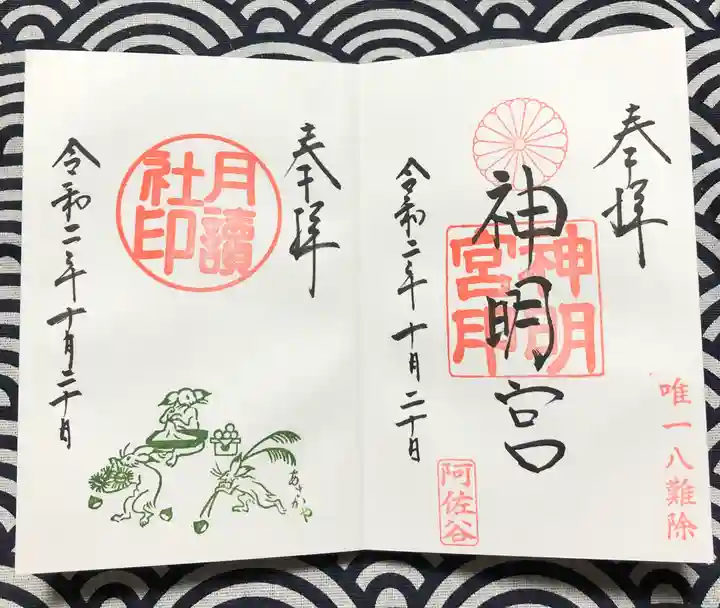 奉拝
神明宮
神明
宮印
唯一八難除
阿佐谷
令和二年十月二十日
奉拝
月讀
社印
令和二年十月二十日
あさがや